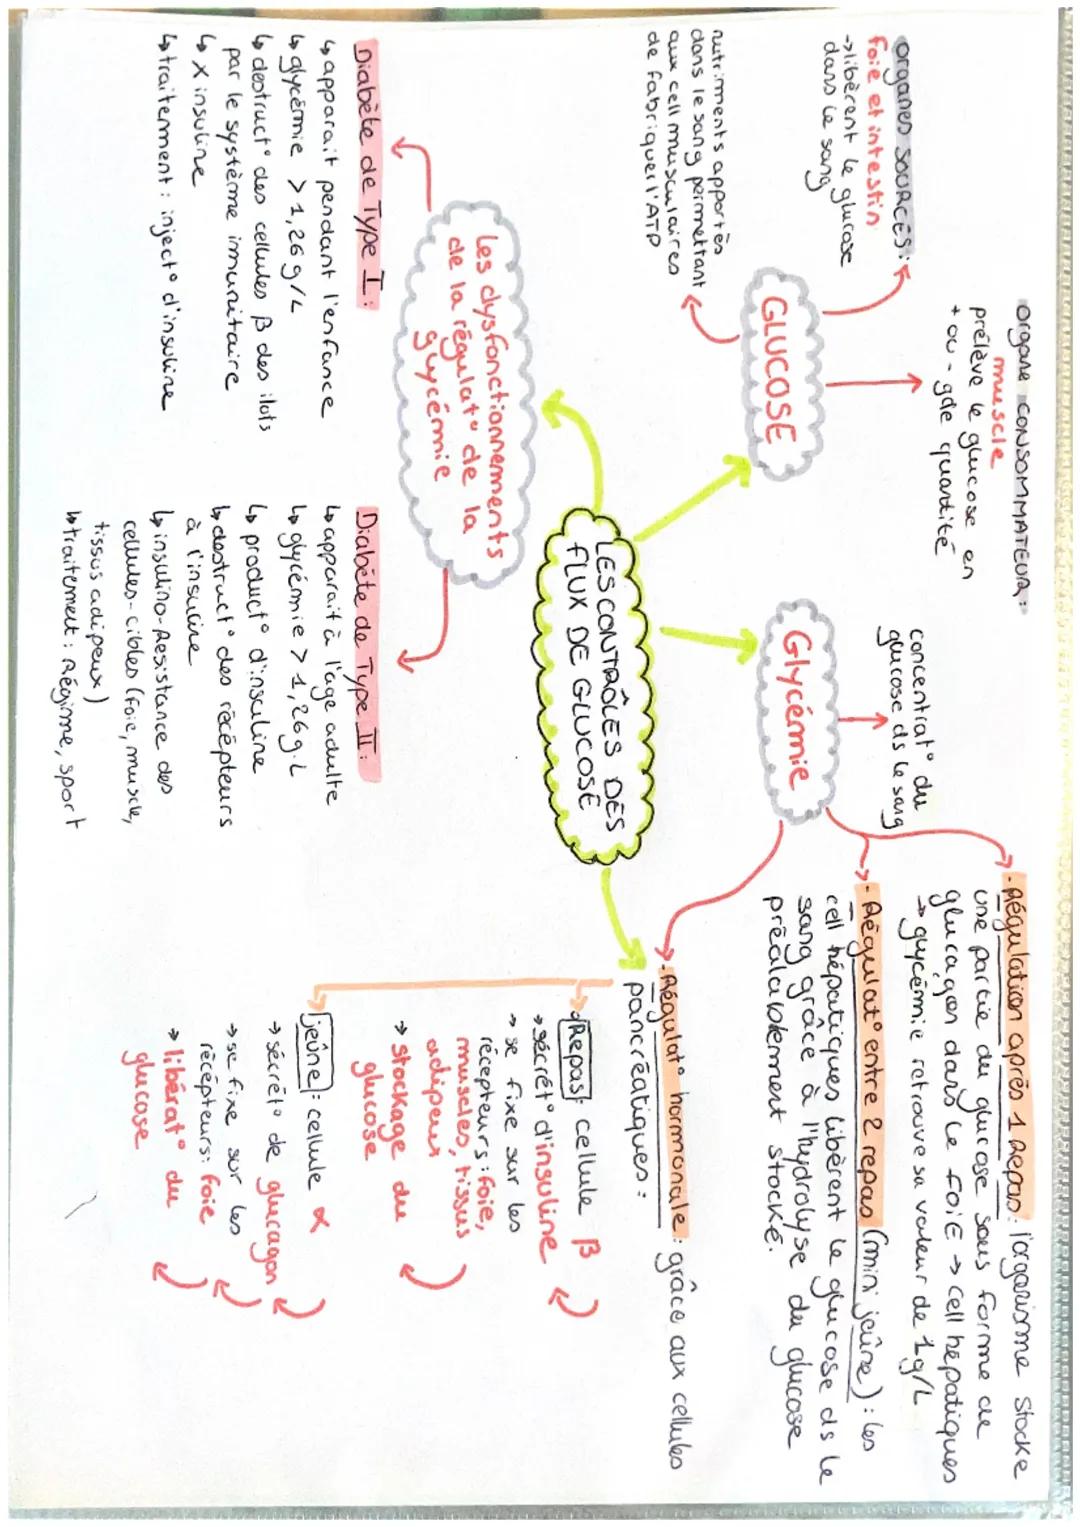 organes SOURCES:
foie et intestin
→libèrent le glucose
dans le sang
organe CONSOMMATEUR:
muscle
prélève le glucose en
+ ou - gde quantité
GLUCOSE
nutriments apportés
dans le sang permettant
aux cell musculaires
de fabriquer l'ATP
concentrat° du
glucose ds le sang
Glycémie
- Régulation après 1 Repas: l'organisme stocke
une partie du glucose sous forme de
glucagon dans le foiE → cell hépatiques
→ glycémie retrouve sa valeur de 1g/L
- Régulat° entre 2 repas (mini jeûne): les
cell hépatiques libèrent le glucose ds le
sang grâce à l'hydrolyse du glucose
préalablement stocké.
LES CONTRÔLES DES
FLUX DE GLUCOSE
- Régulat° hormonale: grâce aux cellules
pancréatiques:
Repas: cellule β
→ sécrét° d'insuline
→ se fixe sur les
récepteurs: foie,
muscles, tissus
adipeux
→ stockage du
glucose
jeûne: cellule α
→ sécrét° de glucagon
→ se fixe sur les
récepteurs: foie
→ libérat° du
glucose
Les dysfonctionnements
de la régulat° de la
glycémie
Diabète de Type I:
↳ apparait pendant l'enfance
↳ glycémie > 1,26 g/L
↳ destruct° des cellules β des ilots
par le système immunitaire
↳ x insuline
↳ traitement: inject° d'insuline
Diabète de Type II:
↳ apparait à l'age adulte
↳ glycémie > 1,26g.L
↳ product° d'insuline
↳ destruct° des récépteurs
à l'insuline
↳ insulino-Resistance des
cellules-cibles (foie, muscle,
tissus adipeux)
↳ traitement: Régime, sport